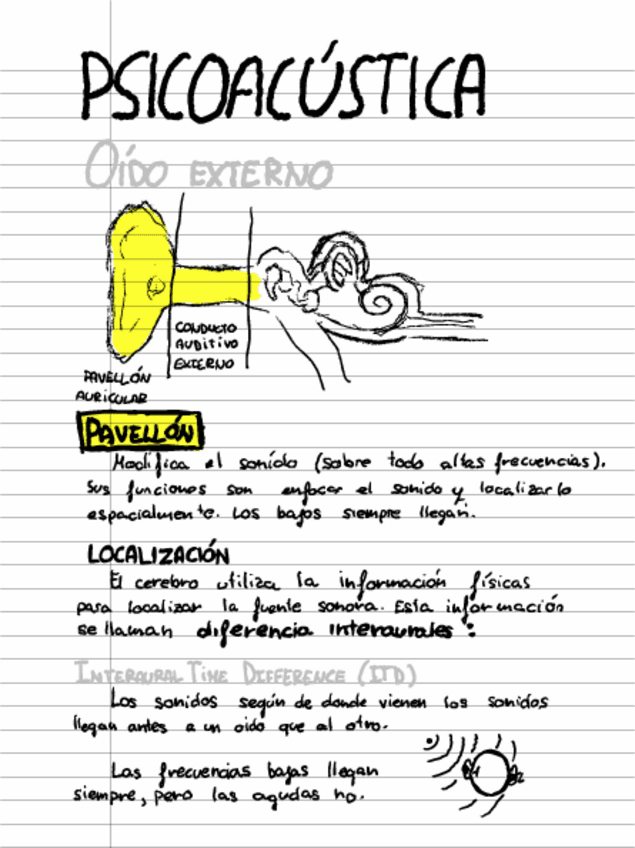 PSICOACÚSTICA
OÍDO EXTERNO
CONDUCTO
AUDITIVO
EXTERNO
PAVELLÓN
AURICULAR
PAVELLÓN
Modifica el sonido (sobre todo altas frecuencias).
Sus funciones son enfocar el sonido y localizarlo
espacialmente. Los bajos siempre llegan.
LOCALIZACIÓN
El cerebro utiliza la información físicas
para localizar la fuente sonora. Esta información
se llaman diferencia interaurales:
INTERAURAL TIME DIFFERENCE (ITD)
Los sonidos según de donde vienen los sonidos
llegan antes a un oido que al otro.
Las frecuencias bajas llegan
siempre, pero las agudas no.